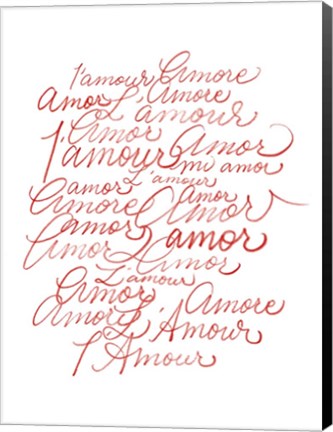 l'amour Amore
Amor L'Amore
L'amour
Amor
l'amour Amor
mi amor
L'amour
amor Amor
Amore Amor
amor
Amor L'amor
Amor
L'amour
Amor Amore
Amore L'Amour
l'Amour